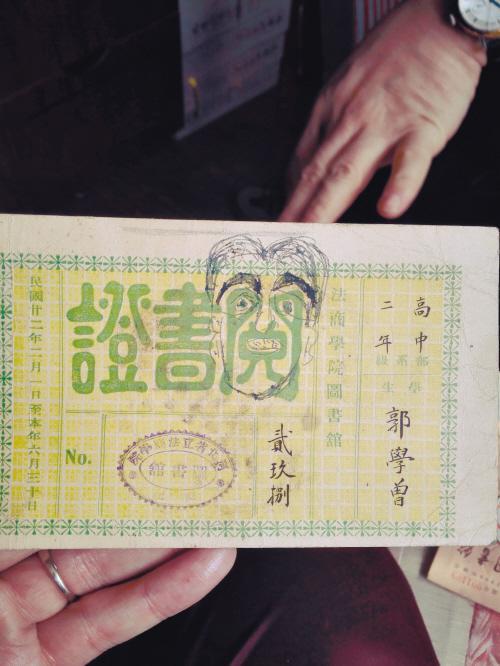 高中部
系
二年級
學生
郭學曾
法商學院圖書館
閱書證
No.
貳玖捌
河北省立法商學院
圖書館
民國廿二年二月一日至本年六月三十日